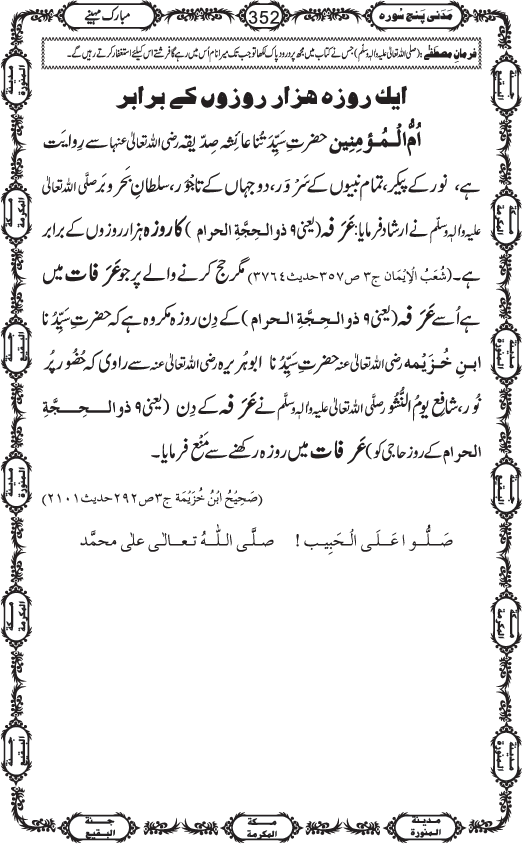 مَدَنی پَنج سُورہ
352
مبارک مہینے
فرمانِ مصطَفٰے : (صلی اللہ تعالیٰ علیہ والہٖ وسلّم) جس نے کتاب میں مجھ پر درودِ پاک لکھا تو جب تک میرا نام اُس میں رہے گا فرشتے اس کیلئے استغفار کرتے رہیں گے۔
ایك روزہ ھزار روزوں کے برابر
اُمُّ الْمُؤمِنِین حضرتِ سَیِّدَتُنا عائِشہ صِدّیقہ رضی اللہ تعالیٰ عنہا سے رِوایت
ہے، نور کے پیکر، تمام نبیوں کے سَرْوَر، دو جہاں کے تاجْوَر، سلطانِ بَحرو بَر صلَّی اللہ تعالیٰ
علیہ والہٖ وسلّم نے ارشاد فرمایا: عَرَفہ (یعنی ۹ ذوالحِجَّۃِ الحرام ) کا روزہ ہزار روزوں کے برابر
ہے۔ (شُعَبُ الْاِیْمَان ج۳ ص۳۵۷ حدیث۳۷۶۴) مگر حج کرنے والے پر جو عَرَفات میں
ہے اُسے عَرَفہ (یعنی ۹ ذوالحِجَّۃِ الحرام ) کے دِن روزہ مکروہ ہے کہ حضرتِ سَیِّدُنا
ابنِ خُزَیْمہ رضی اللہ تعالیٰ عنہ حضرتِ سَیِّدُنا ابوہُریرہ رضی اللہ تعالیٰ عنہ سے راوی کہ حُضُور پُر
نُور، شافِعِ یومُ النُّشُور صلَّی اللہ تعالیٰ علیہ والہٖ وسلَّم نے عَرَفہ کے دِن (یعنی ۹ ذوالحِجَّۃِ
الحرام کے روز حاجی کو) عَرَفات میں روزہ رکھنے سے مَنْع فرمایا۔
(صَحِیْحُ ابْنُ خُزَیْمَۃ ج۳ ص۲۹۲ حدیث۲۱۰۱)
صَلُّوا عَلَی الْحَبِیب ! صلَّی اللّٰہُ تعالیٰ علیٰ محمَّد
جنة البقیع
مدینة المنورة
مکة المکرمة
مکة المکرمة
مدینة المنورة
جنة البقیع
جنة البقیع
مدینة المنورة
مکة المکرمة
مکة المکرمة
مدینة المنورة
جنة البقیع
مدینة المنورة
مکة المکرمة
جنة البقیع